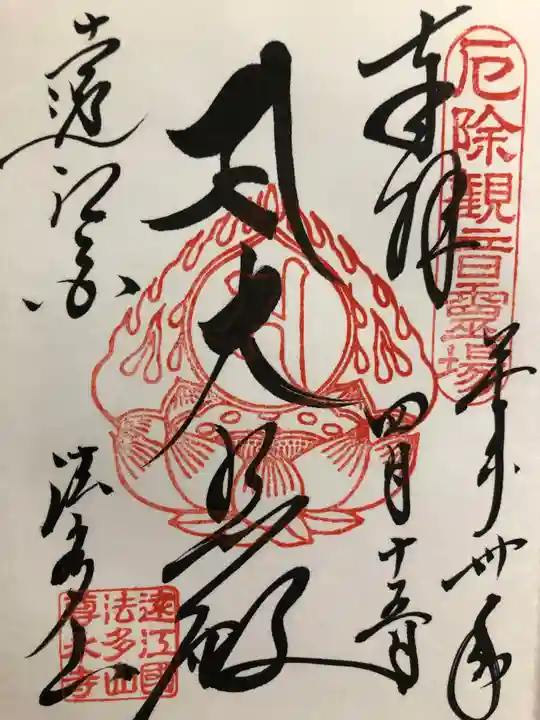 厄除觀音靈場
奉拝
平成卅年
四月十五日
大悲殿
遠江国
法多山
遠江國
法多山
尊永寺